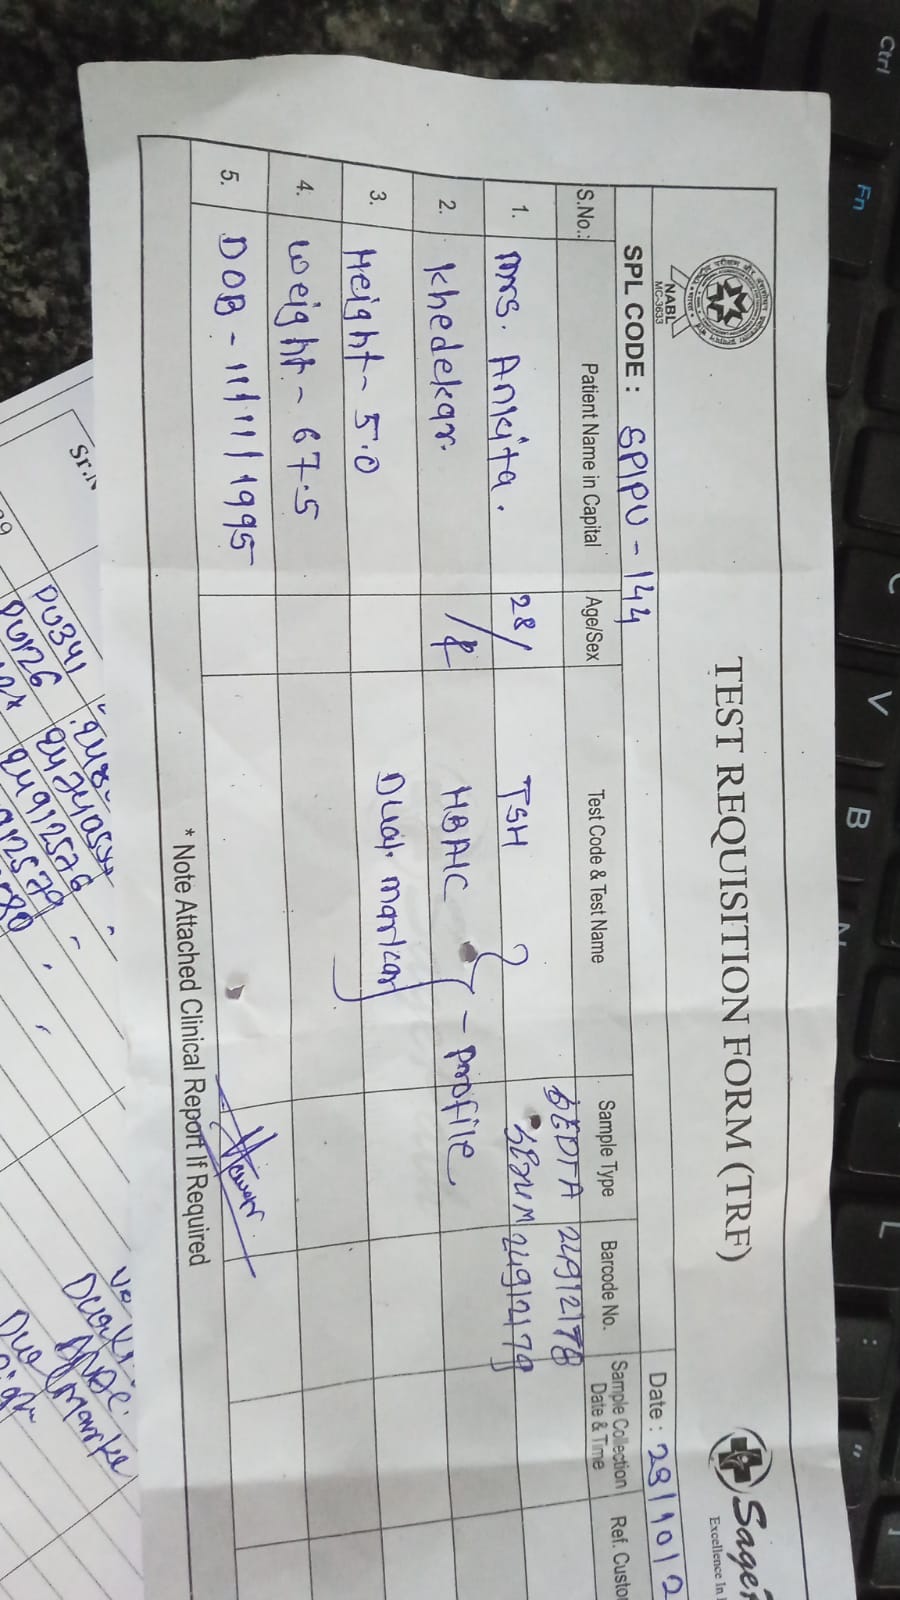 TEST REQUISITION FORM (TRF)
Excellence In
NABL
MC-3633
SPL CODE : SPIPU - 144
Date : 29/10/2
S.No.:
Patient Name in Capital
Age/Sex
Test Code & Test Name
Sample Type
Barcode No.
Sample Collection
Date & Time
EDTA 24912178
1. mrs. Ankita. 28/ TSH serum 24912179
2. Khedekar. /F HBA1C - profile
3. Height - 5.0 Dual marker
4. Weight - 67.5
5. DOB - 11/11/1995
* Note Attached Clinical Report If Required
PU341
PU126
24912576
Ctrl
Fn
C
V
B
N
L
:
"